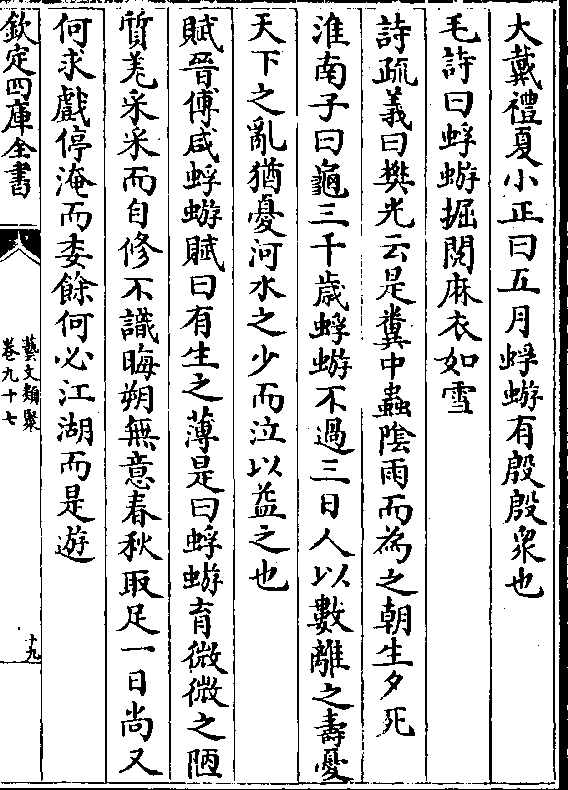 大戴禮夏小正曰五月蜉蝣有殷殷衆也
毛詩曰蜉蝣掘閱麻衣如雪
詩疏義曰樊光云是糞中蟲隂雨而為之朝生夕死
淮南子曰龜三千歲蜉蝣不過三日人以數離之壽憂
天下之亂猶憂河水之少而泣以益之也
賦晉傅咸蜉蝣賦曰有生之薄是曰蜉蝣育微微之陋
質羌采采而自修不識晦朔無意春秋取足一日尚又
何求戲停淹而委餘何必江湖而是遊
欽定四庫全書
藝文類聚
卷九十七
十九